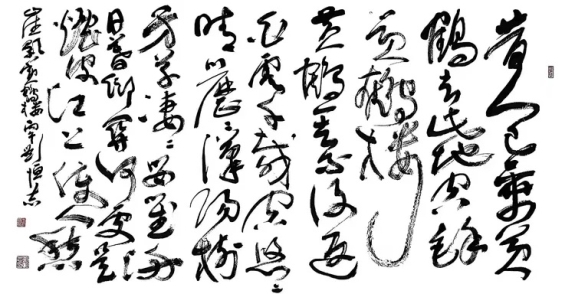 昔人已乘黃
鶴去此地空餘
黃鶴樓
黃鶴一去不復返
白雲千載空悠〻
晴川歷〻漢陽樹
芳草萋〻鸚鵡洲
日暮鄉關何處是
煙波江上使人愁
崔顥黃鶴樓